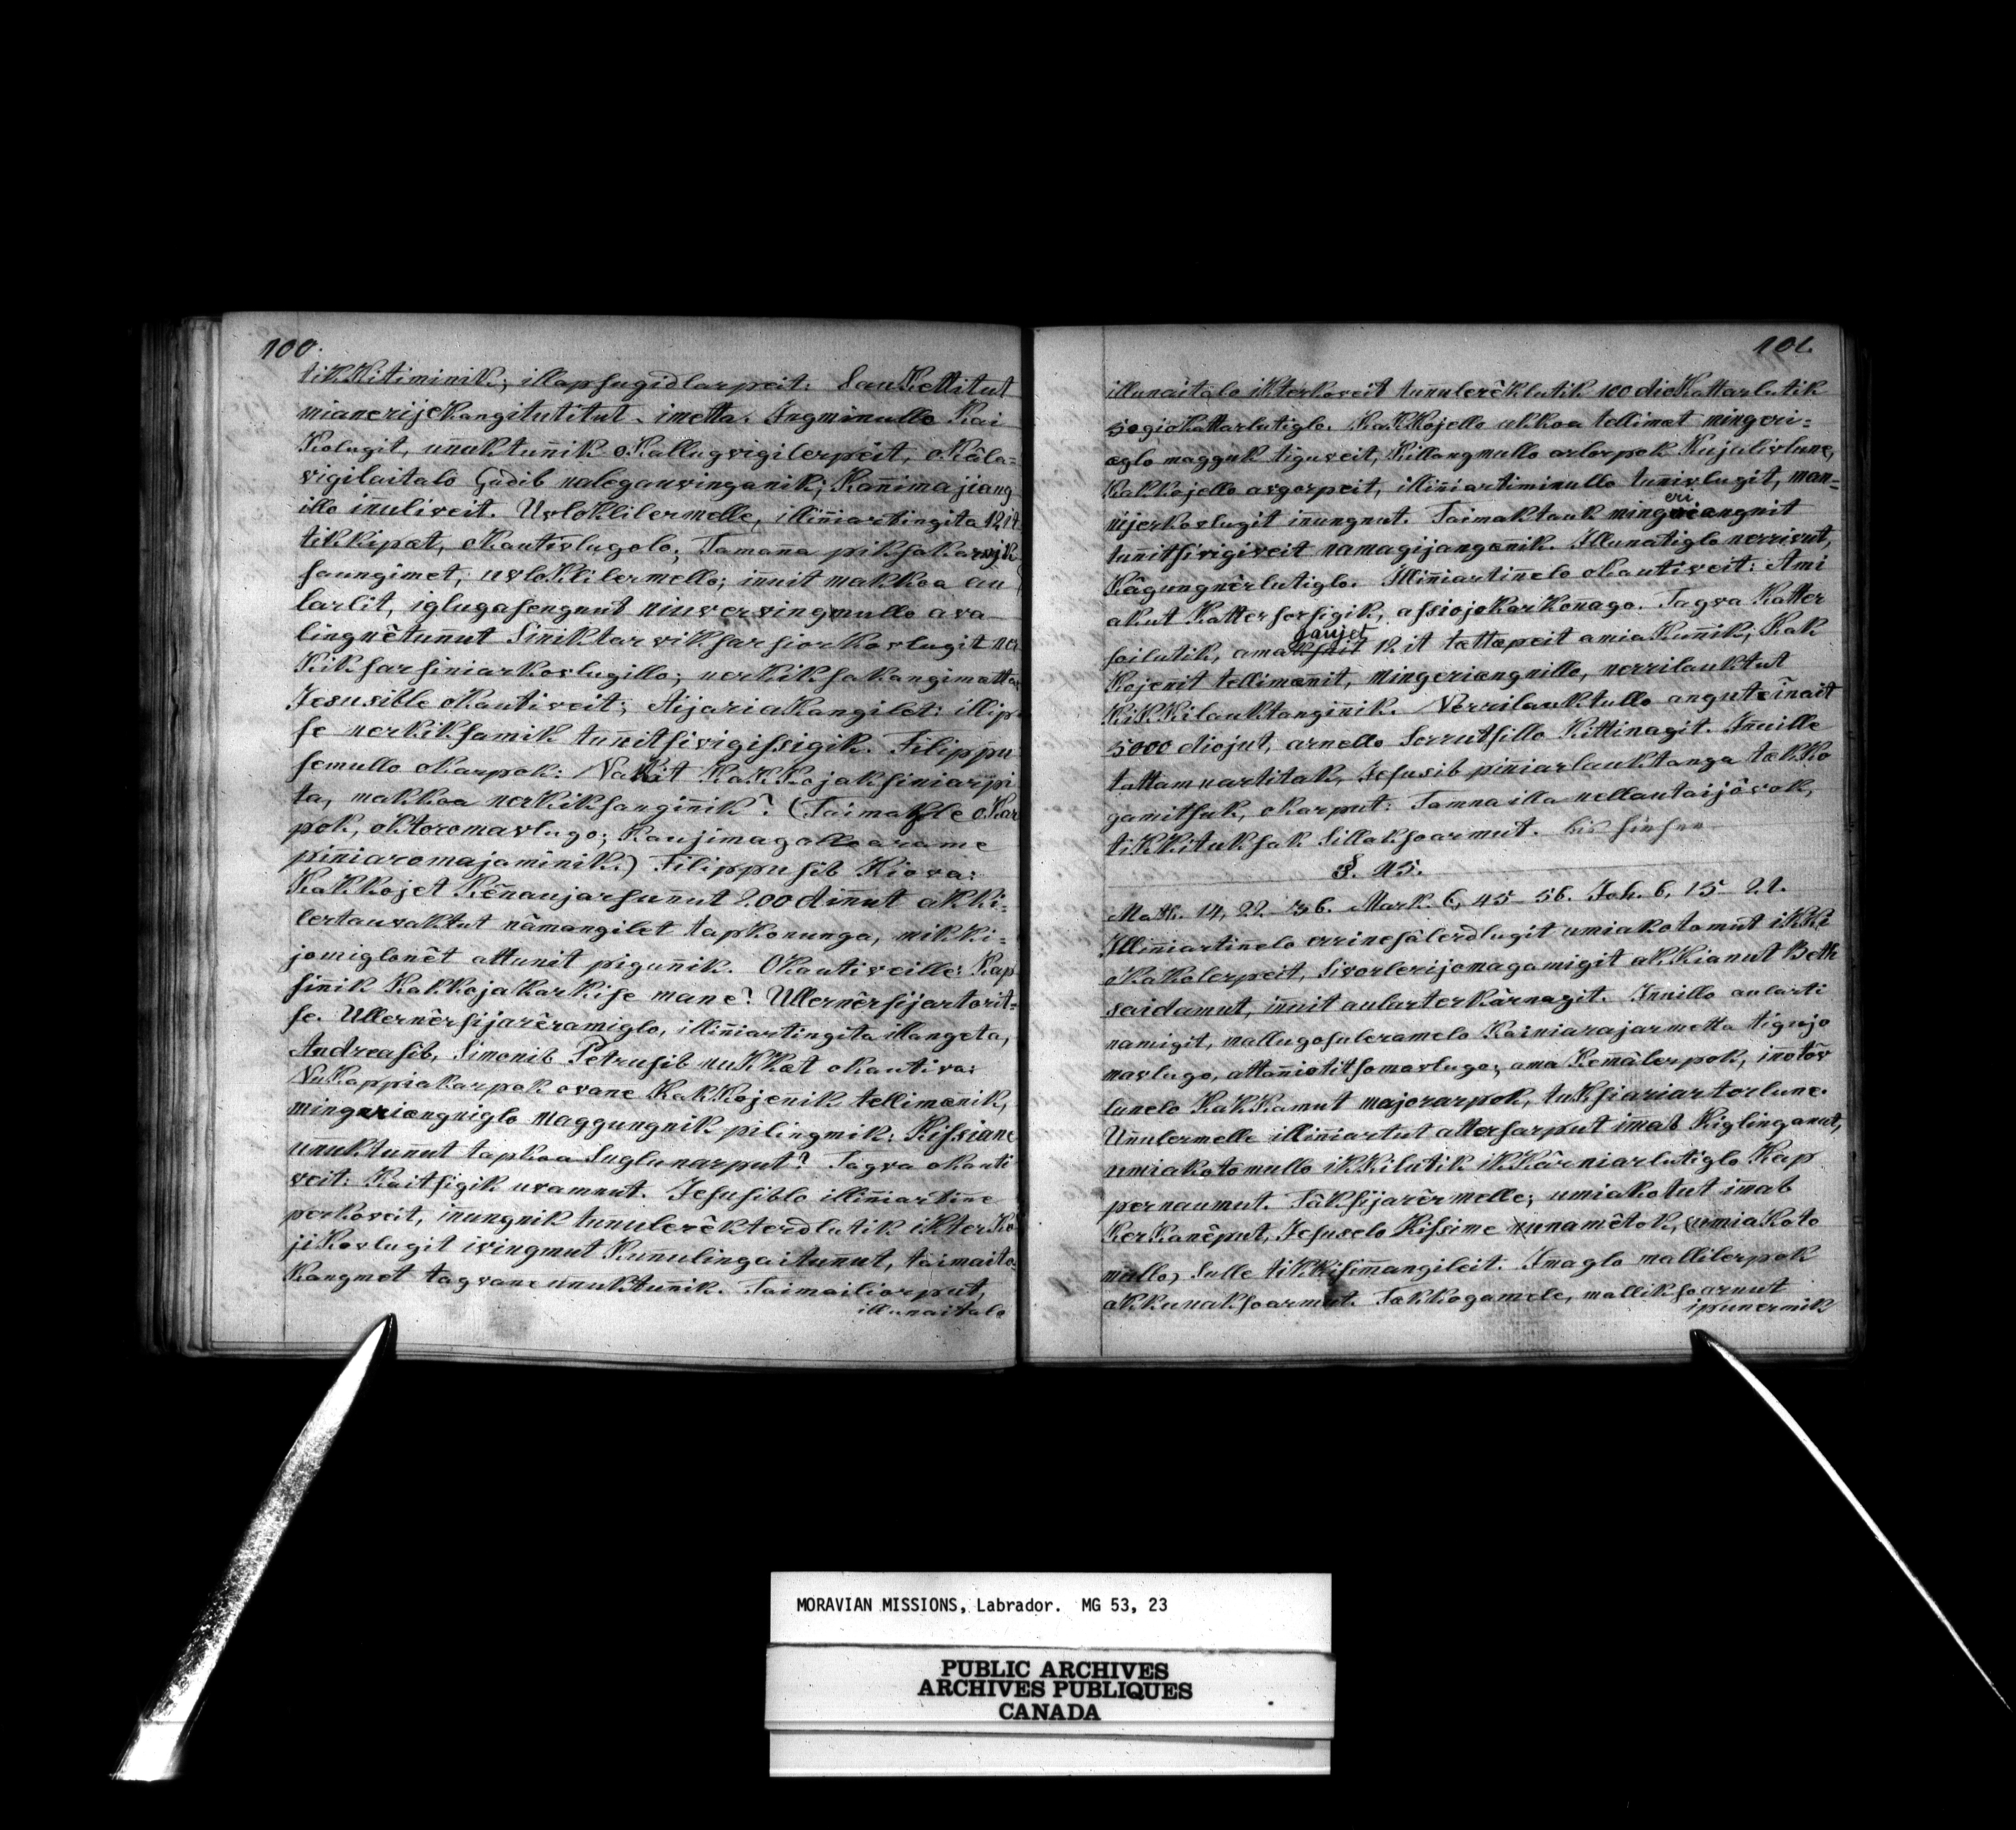 100.
tikkitiminik; illapsugidlarpeit: Saukettitut
mianerijekangitutitut imetta. Ingminullo Kai
Kolugit, unuktunik okallugvigilerpeit, okâla=
vigilaitalo Gudib nalegauvinganik; Kanimajiang
illo inuliveit. Uvloklilermelle, illiniartingita 12it
tikkipat, okautivlugolo; Tamana piksaka
saungimet, uvloklilermello; inuit makkoa au
larlit, iglugasengnut niuvervingmullo ava
lingnêtunnut Siniktarviksarsiorkovlugit ner
kiksarsiniarkovlugillo; nerkiksakangimatta
Jesusible okautiveit; Aijariakangilet: illip
se nerkiksamik tunitsivigissigik. Filippu
semullo okarpok: Nakit Kakkojaksiniarpi
ta, makkoa nerkiksanginik? (Taimakle okar
pok, oktoromavlugo; Kaujimagalloarame
piniaromajaminik.) Filippusib Kiova:
Kakkojet Kênaujarsunnut 200 dinnut akki=
lertauvaktut nâmangilet tapkonunga, mikki=
jomiglonêt attunit pigunik. Okautiveille: Kap
sinik Kakkojakarkise mane? Ullernêrsijartorit=
se. Ullernêrsijarêramiglo, illiniartingita illangeta,
Andreasib, Simonib Petrusib nukkat okautiva:
Nukappiakarpok ovane Kakkojenik tellimanik,
mingeriangniglo maggungnik pilingmik: Kissiane
unuktunut tapkoa Suglunarput? Tagva okauti
veit: Kaitsigik uvamnut. Jesusiblo illiniartine
perkoveit, inungnik tunulerêkterdlutik ikterko
jikovlugit ivingmut Kunulingaitunnut, taimaito=
kangmet tagvane unuktunik. Taimailiorput,
illunaitalo
101.
illunaitalo ikterkoveit tunulerêklutik 100 diokattarlutik
50 giokattarlutiglo. Kakkojello akkoa tellimat mingeri=
aglo magguk tiguveit, Killangmullo arlorpok Kujalivlune,
Kakkojello avgorpeit, illiniartiminullo tunivlugit, man=
nijerkovlugit inungnut. Taimaktauk mingeriangnit
eri
tunitsivigiveit namagijanganik. Illunatiglo nerrivut,
Kâgungnêrlutiglo. Illiniartinelo okautiveit: Ami
akut Kattersorsigik, assiojokarkonago. Tagva Katter
gaujet
soilutik, 12 it tattapeit amiakunik; Kak
Kojenit tellimanit, mingeriangnillo, nerrilauktut
KiKKilauktanginik. Nerrilauktullo anguteinait
5000 diojut, arnello Sorrutsillo Kittinagit. Inuille
tattamnartitak, Jesusib piniarlauktanga takko
gamitsuk, okarput: Tamnailla nellautaijôvok,
tikkituksak Sillaksoarmut.
§. 45.
Math. 14, 22-36. Mark. 6, 45-56. Joh. 6, 15-21.
Illiniartinelo errinesâlerdlugit umiakotomut ikke
kakolerpeit, Sivorlerijomagamigit akkianut Beth
saidamut, inuit aularterkârnagit. Innillo aularti
namigit, mallugosuleramelo Kainiarajarmetta tigujo
mavlugo, attaniotitsomavlugo; ama Kemâlerpok, inotôv
lunelo Kakkamut majorarpok, tuksiariartorlune.
Unulermelle illiniartut attersarput imab Kiglinganut,
umiakotomullo ikkilutik ikkârniarlutiglo Kap
pernaumut. Tâksijarêrmelle; umiakotut imab
KerKanêput, Jesuselo Kissime nunamêtok, (umiakoto
miallo) Sulle tikkisimangileit. Imaglo mallilerpok
akkunaksoarmut. Takkogamele, malliksoarnut
ipunermik
MORAVIAN MISSIONS, Labrador. MG 53, 23
PUBLIC ARCHIVES
ARCHIVES PUBLIQUES
CANADA